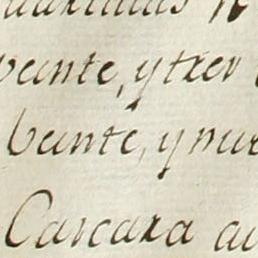 beinte, y tres
beinte, y nue
Cascara au